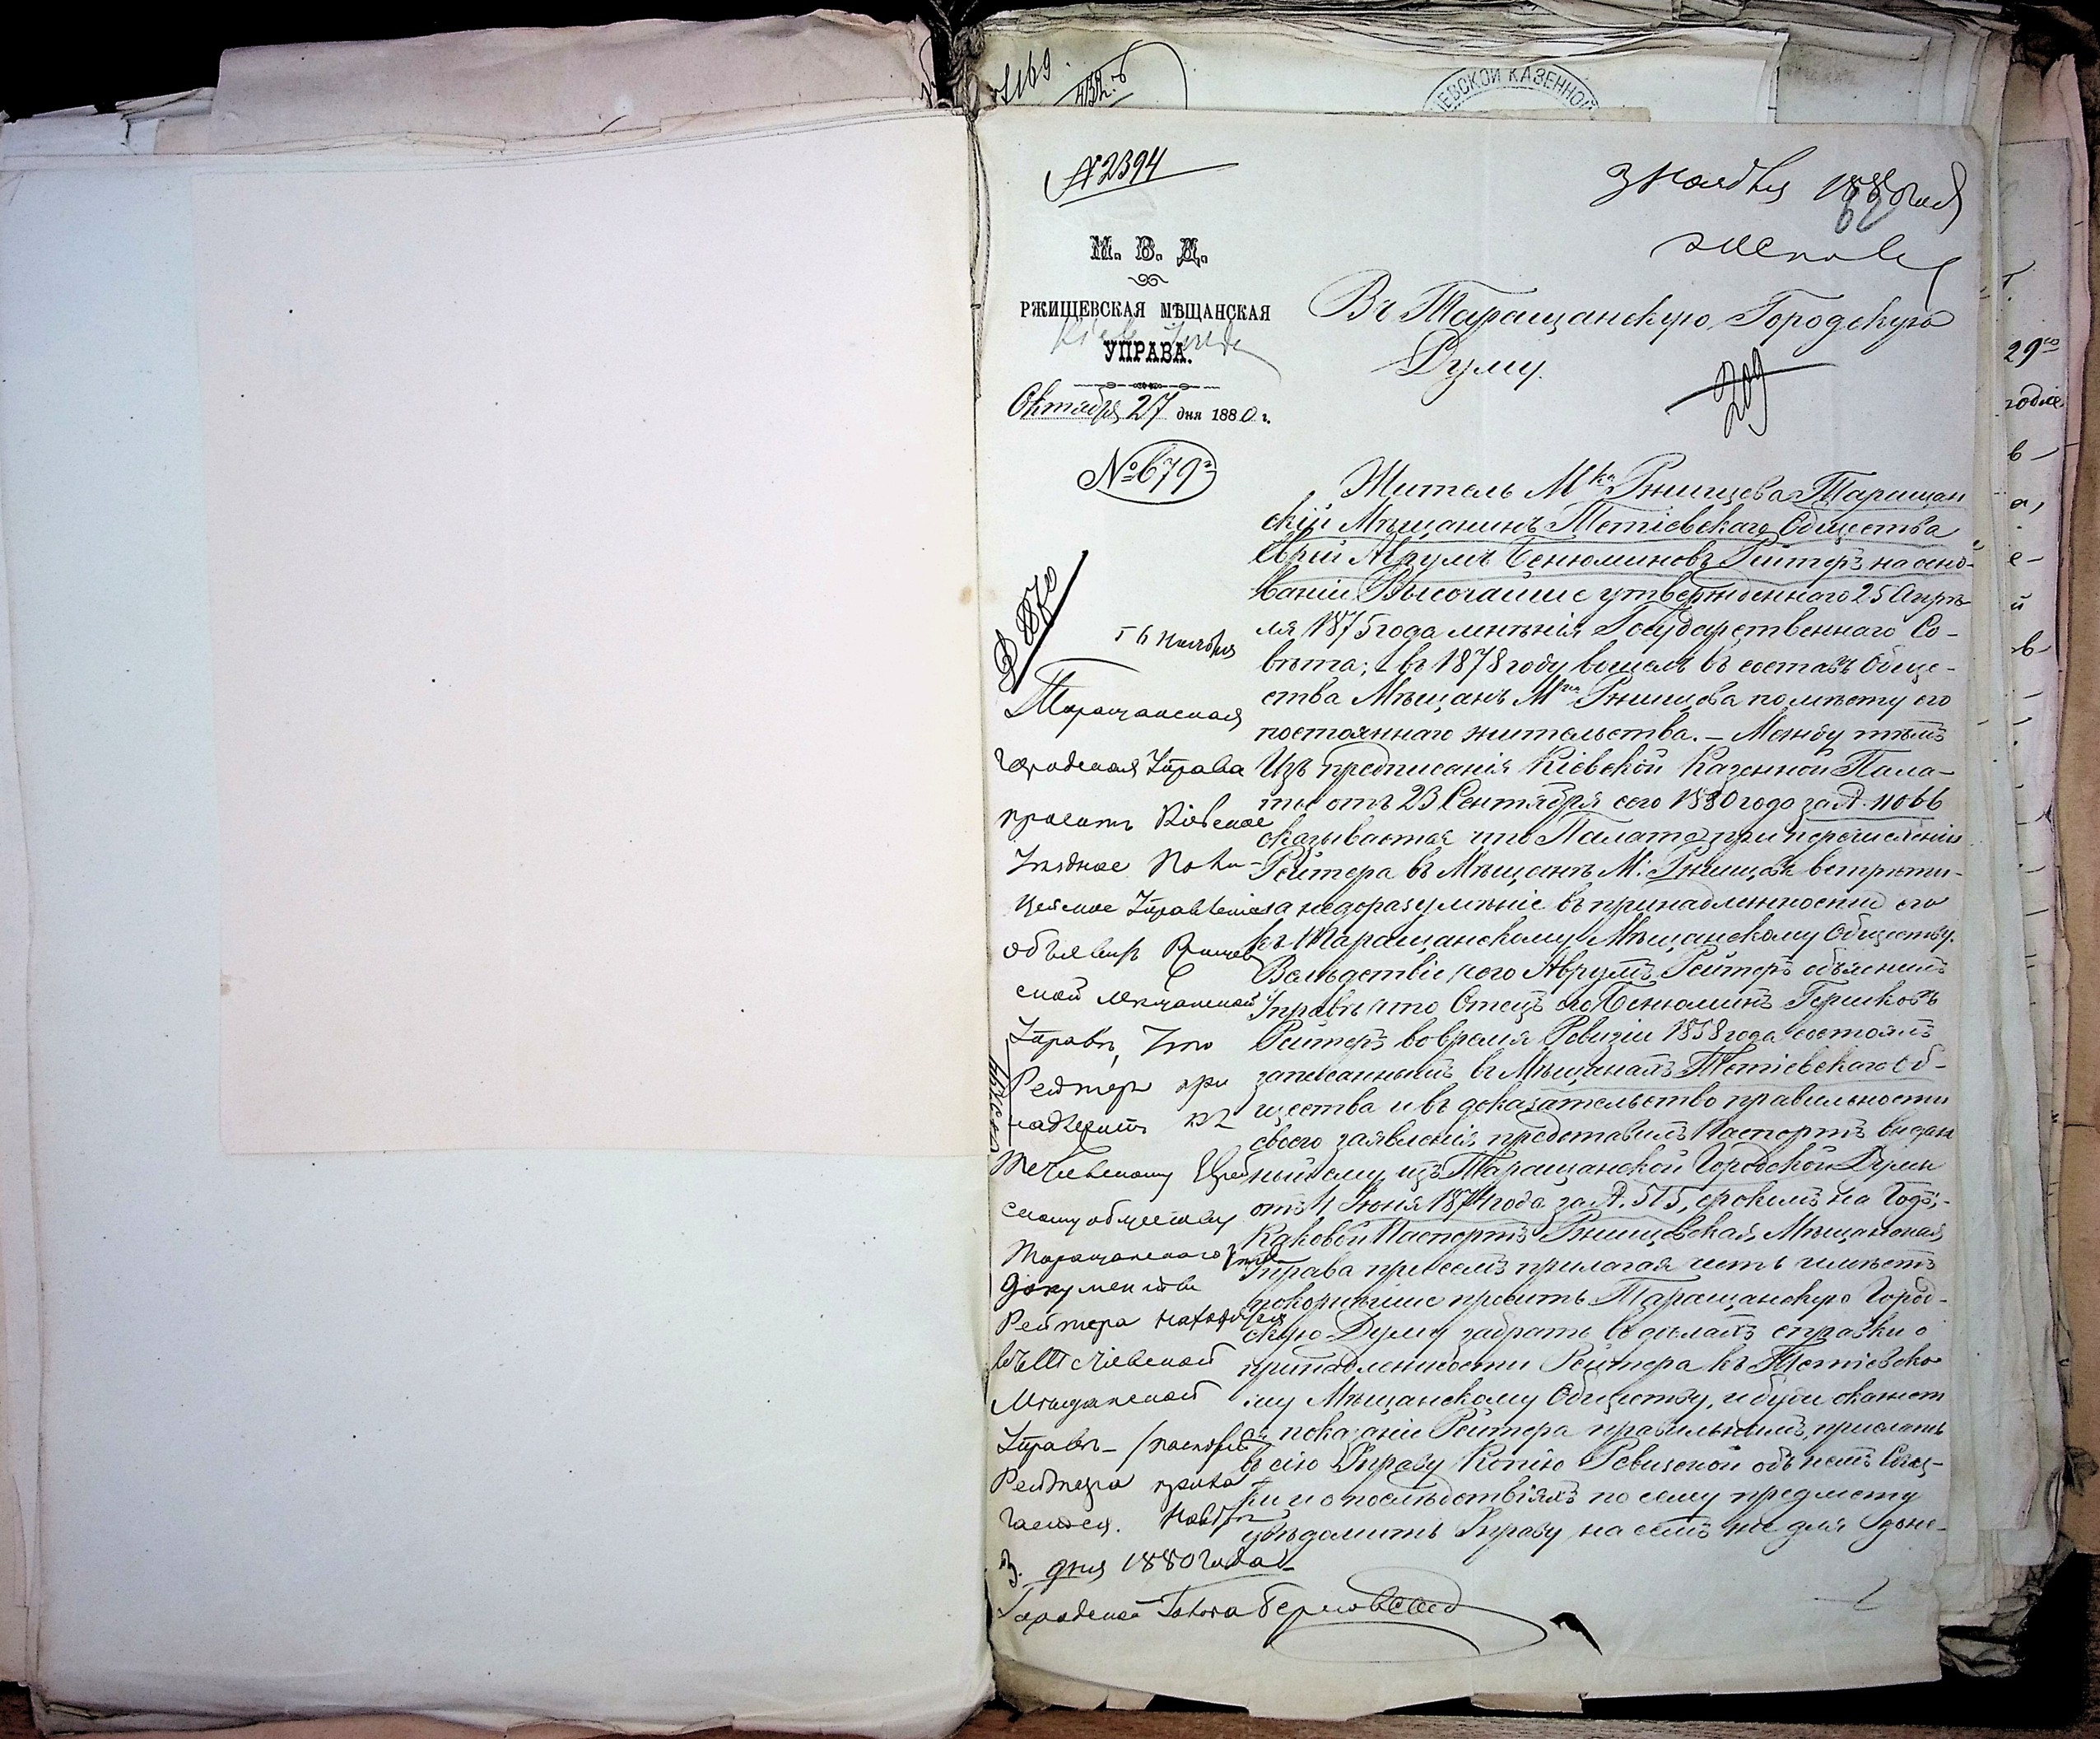 1169.
432.
ІЕВСКОЙ КАЗЕННОЙ
№ 2394
3 Ноября 1880 года
62
М. В. Д.
РЖИЩЕВСКАЯ МѢЩАНСКАЯ
УПРАВА.
Октября 27 дня 1880 г.
№ 679
Въ Таращанскую Городскую
Думу.
209
Житель Мка Ржищева Таращан
скій Мѣщанинъ Тетіевскаго Общества
Еврей Аврумъ Бенюминовъ Рейтеръ на осно-
ваніи Высочайше утвержденнаго 25 Апрѣ-
ля 1875 года мнѣнія Государственнаго Со-
вѣта; въ 1878 году вошелъ въ составъ Обще-
ства Мѣщанъ Мка Ржищева по мѣсту его
постояннаго жительства. – Между тѣмъ
Изъ предписанія Кіевской Казенной Пала-
ты отъ 23 Сентября сего 1880 года за № 11066
оказывается что Палата при перечисленіи
Рейтера въ Мѣщане М. Ржищева встрѣти-
ла недоразумѣніе въ принадлежности его
къ Таращанскому Мѣщанскому Обществу.
Вслѣдствіе чего Аврумъ Рейтеръ объяснилъ
Управѣ что Отецъ его Бенюминъ Гершковъ
Рейтеръ во время Ревизіи 1858 года состоялъ
записаннымъ въ Мѣщанахъ Тетіевскаго Об-
щества и въ доказательство правильности
своего заявленія представилъ Паспортъ выдан
ный ему изъ Таращанской Городской Думы
отъ 4 Июня 1874 года за №. 515, срокомъ на Годъ;-
Каковой Паспортъ Ржищевская Мѣщанская
Управа при семъ прилагая честь имѣетъ
покорнѣйше просить Таращанскую Город-
скую Думу забрать въ дѣлахъ справки о
принадлежности Рейтера къ Тетіевско
му Мѣщанскому Обществу, и буде окажет
ся показаніе Рейтера правильнымъ, прислать
въ сію Управу Копію Ревизской объ немъ Сказ-
ки и о послѣдствіяхъ по сему предмету
увѣдомить Управу на семъ же для доне-
5 Ноября
Таращанская
Городская Управа
проситъ Кіевское
Уѣздное Поли-
цейское Управленіе
объявить Ржищев
ской мѣщанской
Управѣ, что
Рейтеръ при
надлежитъ къ
Тетіевскому Еврей
скому обществу
Таращанского уѣзда
документы
Рейтера находятся
въ Тетіевской
Мѣщанской
Управѣ – паспортъ
Рейтера прила
гается. Ноября
3. дня 1880 года
Городской Голова